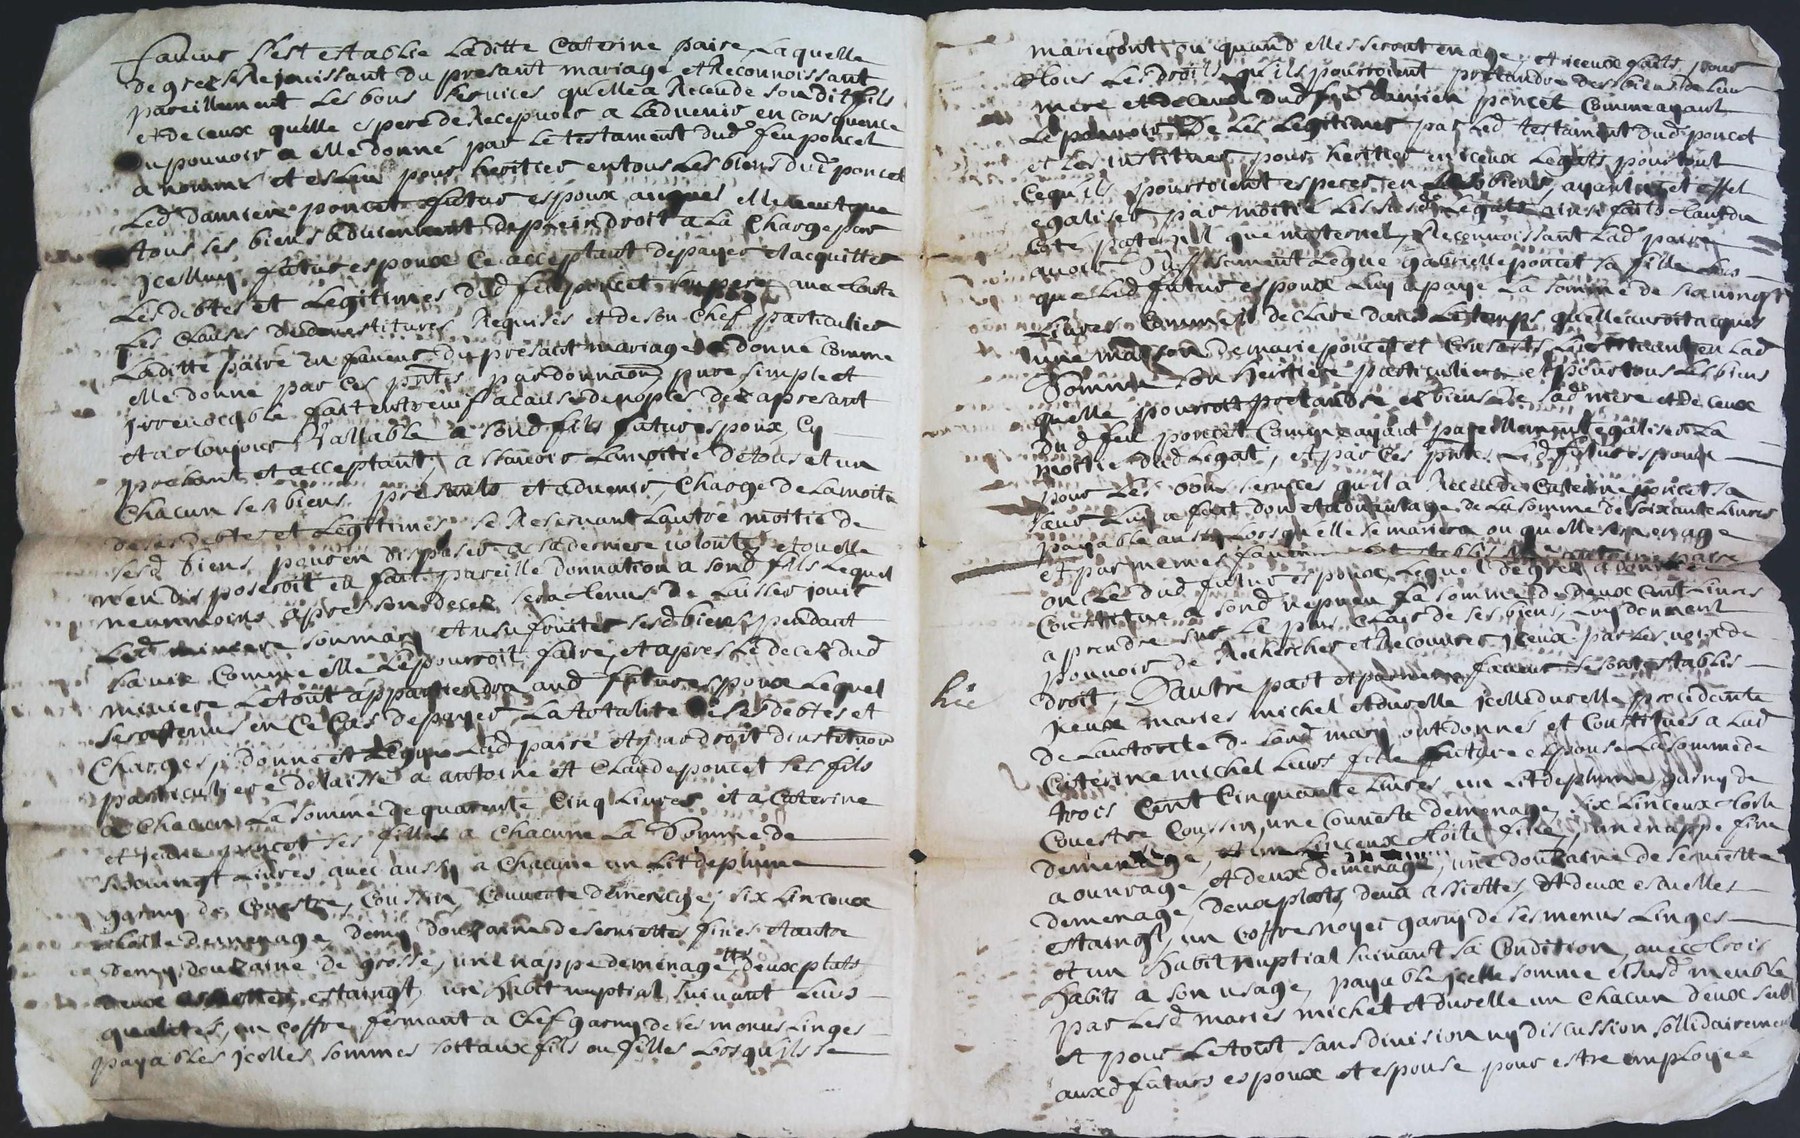 faveur s'est establie Laditte Caterine paire, Laquelle
de gré se Rejouissant du presant mariage et Reconnoissant
pareillement Les bons services qu'elle a Receu de son dit fils
et de ceux qu'elle espere de Recepvoir a L'advenir en consequence
du pouvoir a elle donné par Le testament dud feu poncet
a nommé et esleu pour heritier en tous Les biens dud poncet
Led damien poncet futur espoux auquel elle veut que
tous ses biens adviennent de plein droit a La Charge par
jcelluy futur espoux Ce acceptant de payer et acquitter
Les debtes et Legitimes dud feu poncet son pere avec toutes
Les Clauses de devestitures Requises et de son Chef particulier
Laditte paire en faveur du presant mariage a donné comme
elle donne par ces pntes par donnaon pure simple et
jrrevocable fait entre vifs a cause de nopces des apresant
et a toujours Vallable a sond fils futur espoux Cy
presant et acceptant, a scavoir La moitie de tous et un
Chacun ses biens presants et advenir, Charge de La moitie
de ses debtes et Legitimes, se Reservant L'autre moitie de
sesd biens pour en disposer a sa derniere volonté, et ou elle
n'en disposeroit en fait pareille donnation a sond fils Lequel
neanmoins apres son decez sera tenus de Laisser jouir
Led miniere son mary et usufruiter sesd biens pendant
sa vie Comme elle Le pourroit faire, et apres Le decez dud
miniere Le tout appartiendra aud futur espoux Lequel
sera tenus en Ce Cas de payer La totalite de ses debtes et
Charges, donne et Legue Lad paire et par droit d'institution
particuliere delaisse a antoine et Claude poncet ses fils
a Chacun La somme de quarente Cinq Livres et a Caterine
et jeane poncet ses filles a Chacune La Somme de
six vingt Livres avec aussy a Chacune un Lit de plume
garny de Couestre, Coussin, Couverte de menage, six Linceux
toille de menage, demy douzaine de serviettes fines et autre
demy douzaine de grosse, une nappe de menage, deux plats
deux assiettes estaingt, un habit nuptial suivant Leurs
qualités, un coffre fermant a Clef garny de ses menus Linges
payables jcelles sommes soit aux fils ou filles Lorsqu'ils se
marieront ou quand elles seront en age, et iceux faits pour
tous Les droits qu'ils pourroient pretandre des biens de Leur
mere et de ceux dud feu damien poncet Comme ayant
Le pouvoir De Les Legitimer par Led testament dud poncet
et Les instituer pour heritier en iceux Legats pour tout
Ce qu'ils pourroient esperer en Lesd biens, ayant et effet
egaliser par moitie Les susd Legats ainsi faits tant du
Coté paternel que maternel, Reconnoissant Lad paire
avoir Suffisament Legue gabrielle poncet sa fille Lors
que Led futur espoux Luy a paye La somme de six vingt
Livres Comme declare dans Le temps qu'elle auroit acquis
une maison de marie poncet et Consorts, L'instituant en Lad
Somme son heritiere particuliere et pour tous Les biens
qu'elle pourroit pretandre es biens de Sad mere et de ceux
dud feu poncet Comme ayant pareillement egaliser La
moitie dud Legat, et par Ces pntes Led futur espoux
pour Les bons services qu'il a Receu de Caterine poncet sa
sœur Luy a fait don et advantage de La somme de soixante Livres
payable aussy Lors qu'elle se mariera ou quelle sera en age
et par meme faveur s'est establis antoine paire
oncle dud futur espoux Lequel de gré a donné et
Constitue a sond nepveu La somme de Deux Cent Livres
a prendre sur Le plus Clair de ses biens, Luy donnant
pouvoir de Rechercher et Recouvrer jceux par Les voix de
hic
droit, D'autre part et par meme faveur se sont establis
jceux maries michel et durelle jcelle durelle procedante
De L'autorité De Sond mary ont donnés et Constitués a Lad
Caterine michel Leur fille future espouse La somme de
trois Cent Cinquante Livres un Lit de plume garny de
Couestre Coussin, une Couverte de menage, six Linceux toile
de menage, et un Linceux toile fine, une nappe fine
a ouvrage, et deux de menage, une douzaine de serviette
de menage, deux plats, deux assiettes, et deux escuelles
estaingt, un Coffre noyer garny de ses menus Linges
et un habit nuptial suivant sa Condition, avec trois
habits a son usage, payable jcelle somme et susd meuble
par Lesd maries michel et durelle un Chacun d'eux seul
et pour Le tout sans division ny discussion sollidairement
auxd futurs espoux et espouse pour estre employee